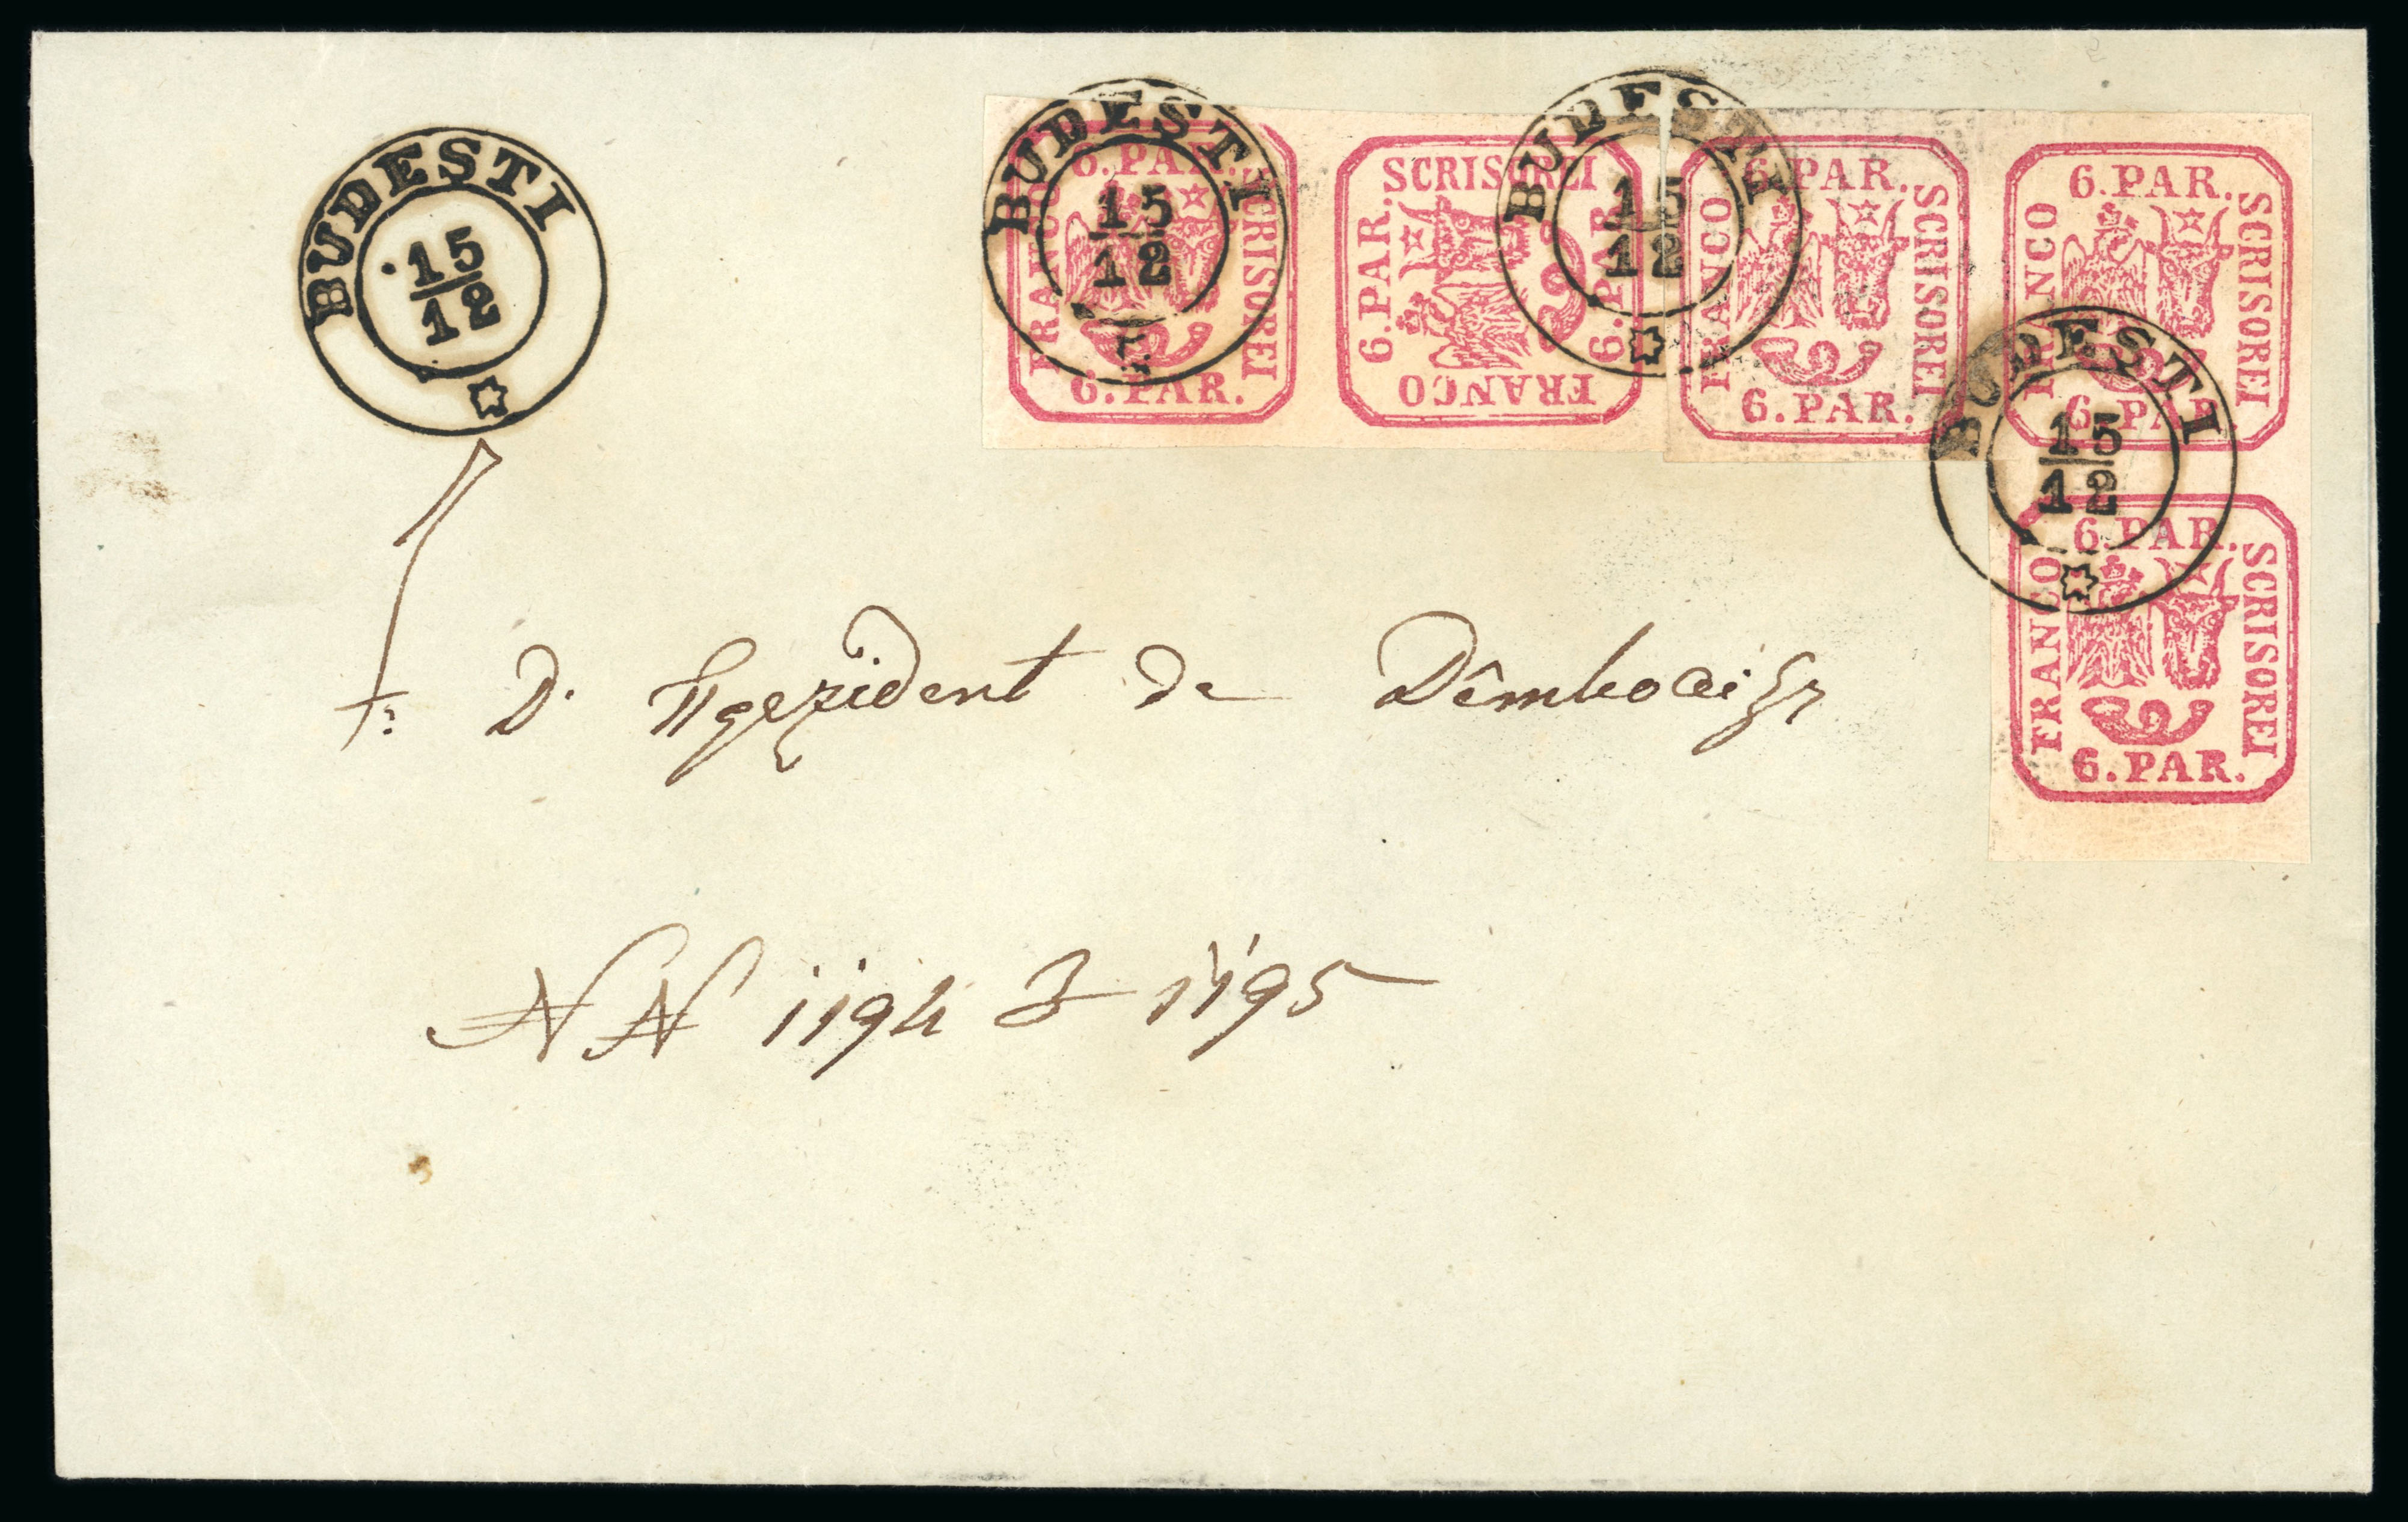 BUDESTI
15
12
BUDESTI
15
12
BUDESTI
15
12
BUDESTI
15
12
6. PAR.
FRANCO
SCRISOREI
6. PAR.
SCRISOREI
6. PAR.
6. PAR.
FRANCO
6. PAR.
FRANCO
SCRISOREI
6. PAR.
6. PAR.
FRANCO
SCRISOREI
6. PAR.
6. PAR.
FRANCO
SCRISOREI
6. PAR.
D. Пρezident de
NN 1194 1195